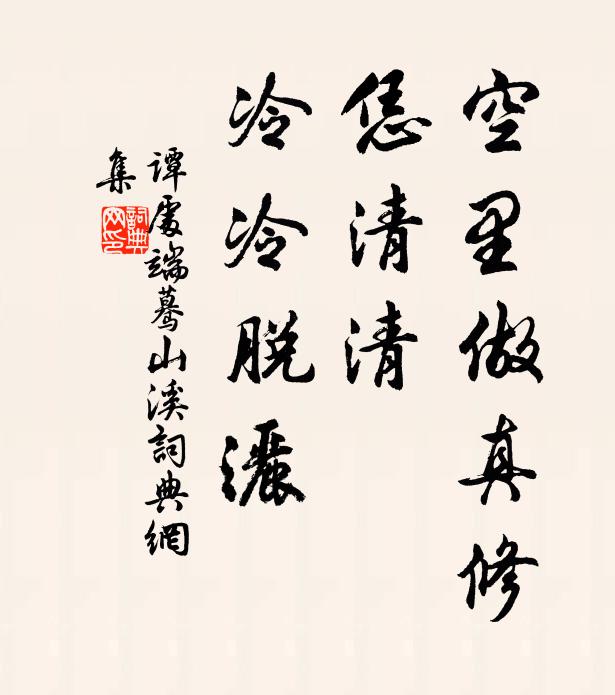 空里做真修
恁清清
冷冷脱灑
譚處端驀山溪詞典網
集
詞典
网印